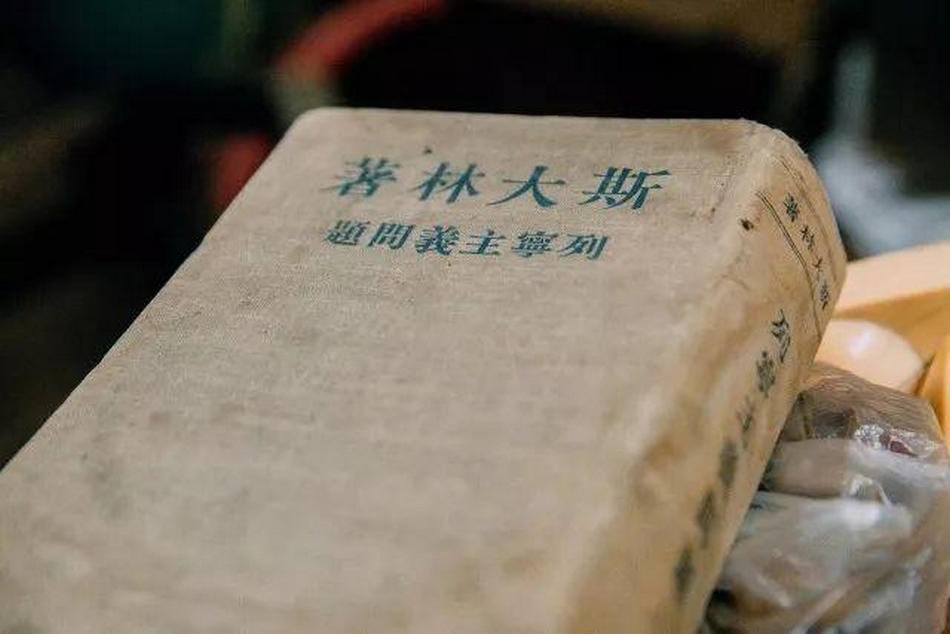 斯大林著
列寧主義問題
斯大林著
列寧